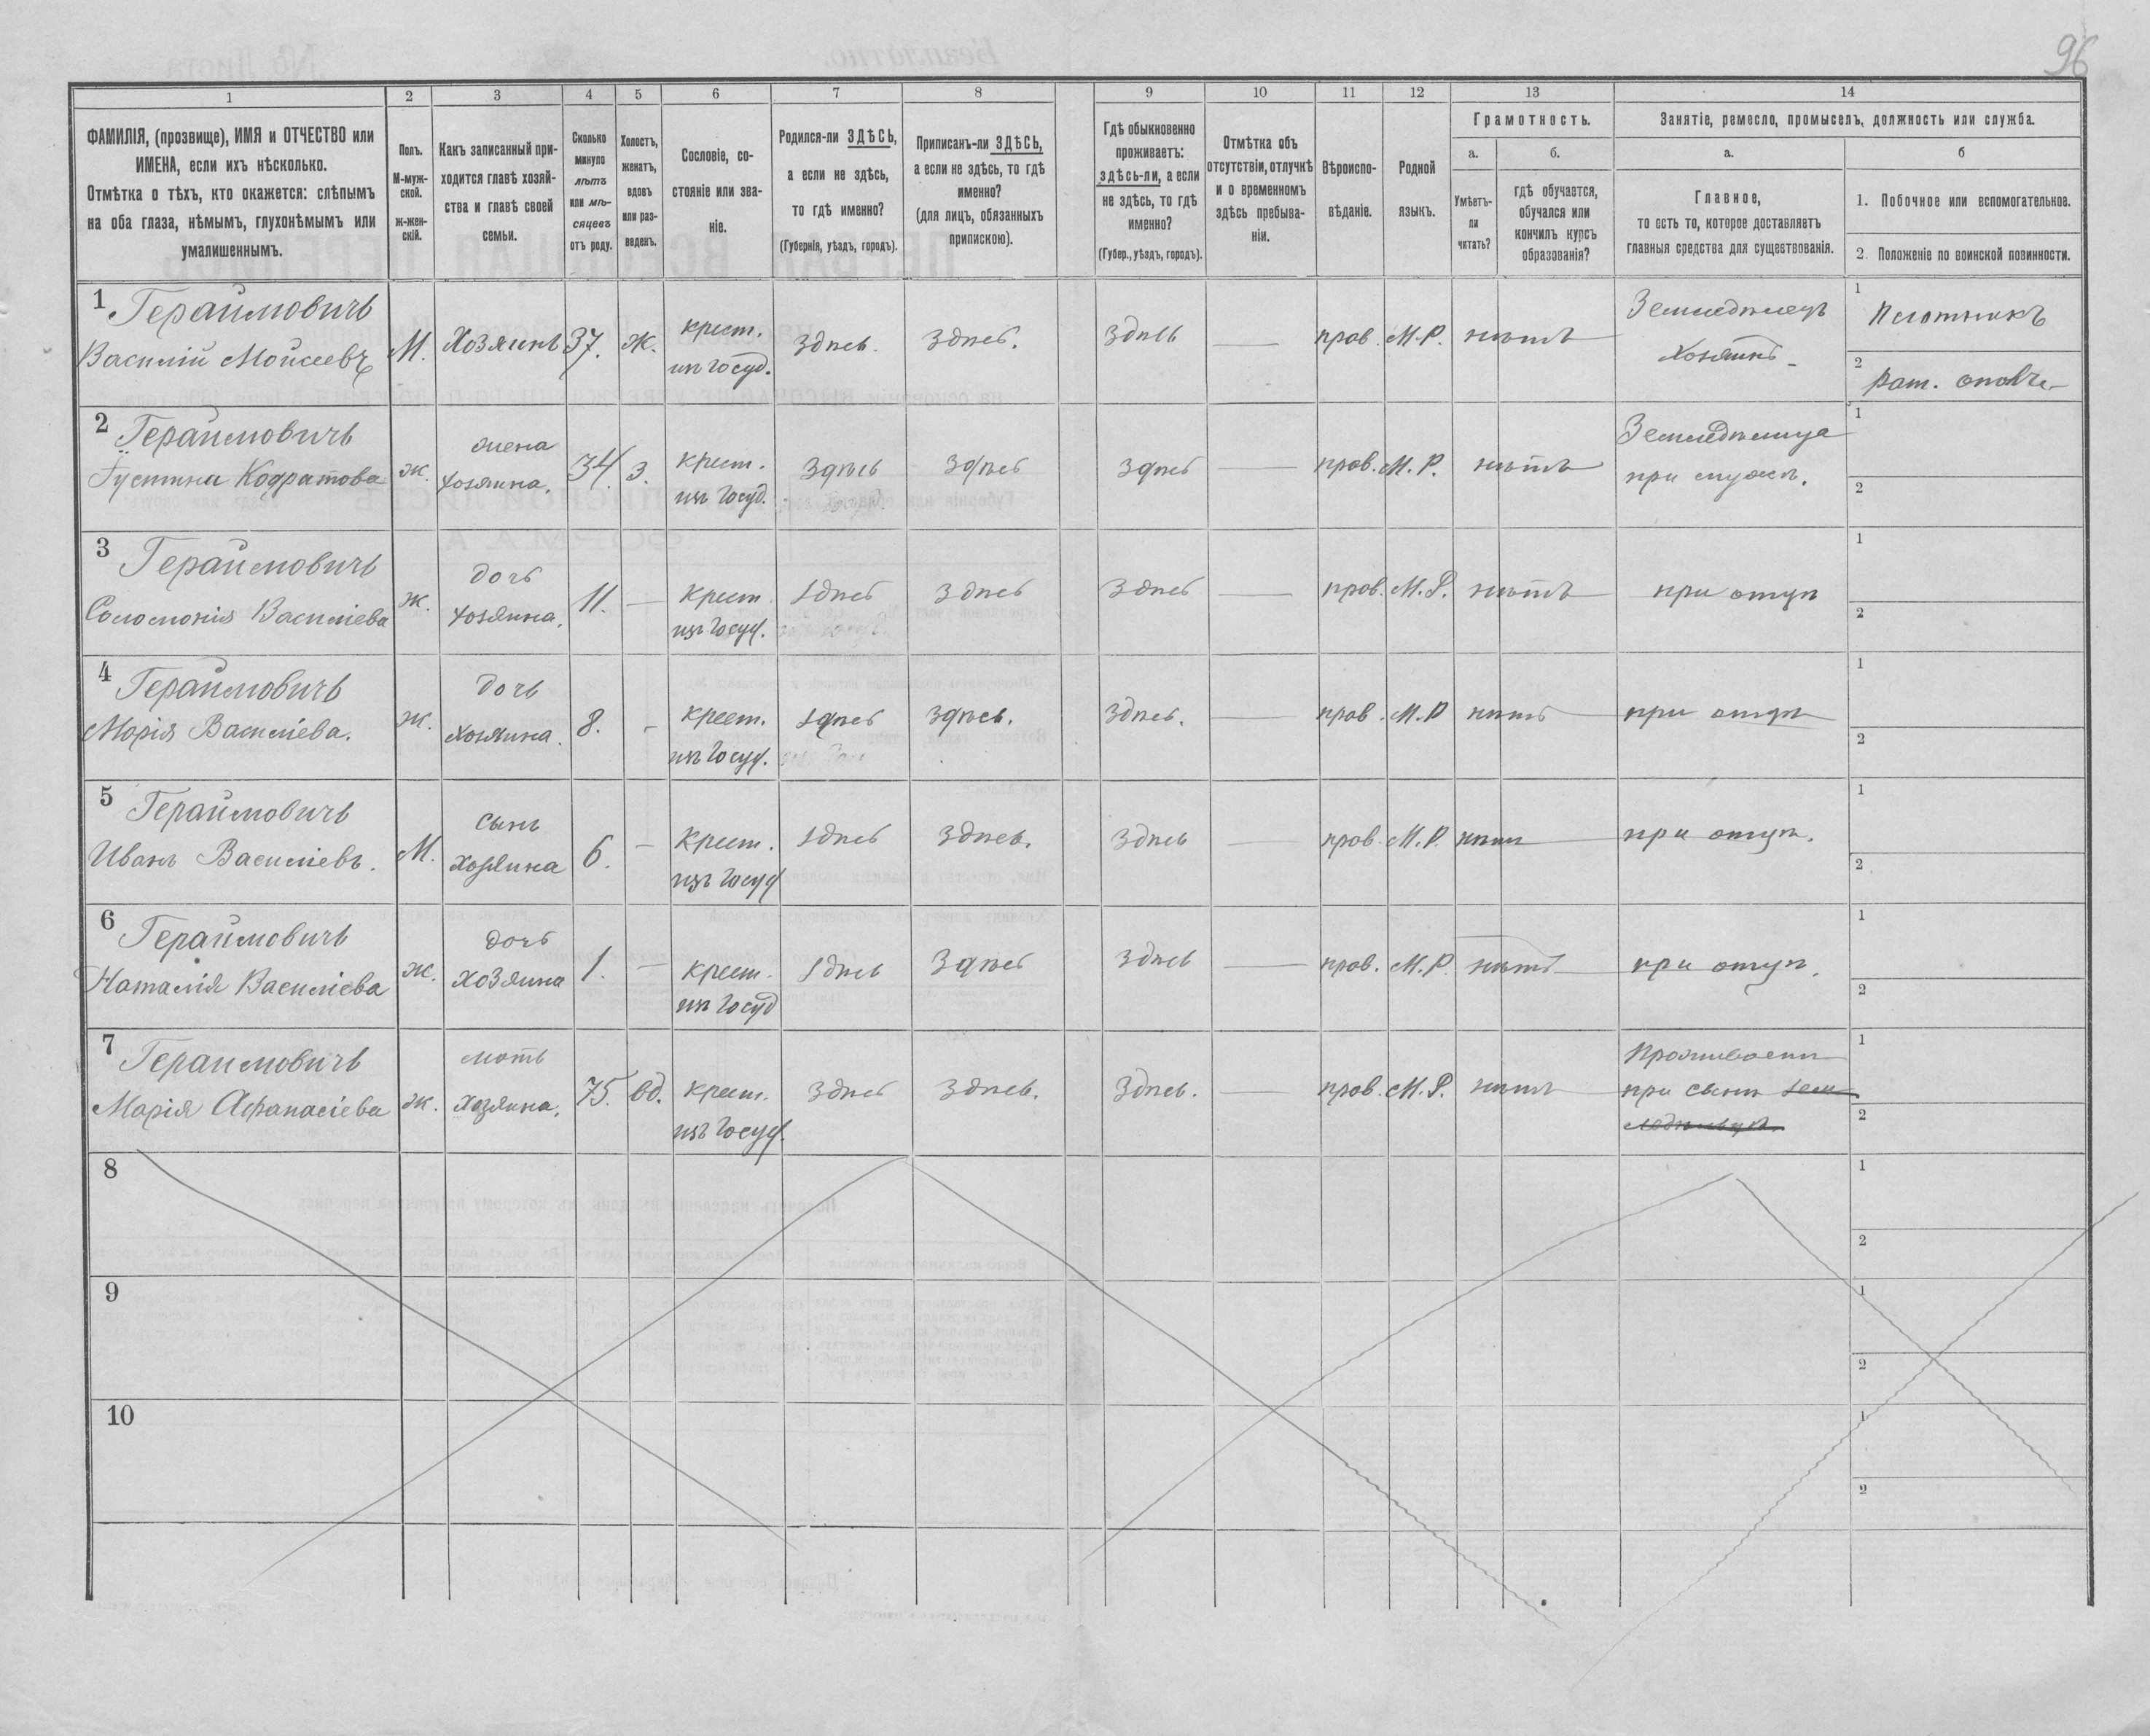 96
1 2 3 4 5 6 7 8 9 10 11 12 13 14
ФАМИЛІЯ, (прозвище), ИМЯ и ОТЧЕСТВО или
ИМЕНА, если ихъ нѣсколько.
Отмѣтка о тѣхъ, кто окажется: слѣпымъ
на оба глаза, нѣмымъ, глухонѣмымъ или
умалишеннымъ.
Полъ.
М-муж-
ской.
ж-жен-
скій.
Какъ записанный при-
ходится главѣ хозяй-
ства и главѣ своей
семьи.
Сколько
минуло
лѣтъ
или мѣ-
сяцевъ
отъ роду.
Холостъ,
женатъ,
вдовъ
или раз-
веденъ.
Сословіе, со-
стояніе или зва-
ніе.
Родился-ли ЗДѢСЬ,
а если не здѣсь,
то гдѣ именно?
(Губернія, уѣздъ, городъ).
Приписанъ-ли ЗДѢСЬ,
а если не здѣсь, то гдѣ
именно?
(для лицъ, обязанныхъ
припискою).
Гдѣ обыкновенно
проживаетъ:
здѣсь-ли, а если
не здѣсь, то гдѣ
именно?
(Губер., уѣздъ, городъ).
Отмѣтка объ
отсутствіи, отлучкѣ
и о временномъ
здѣсь пребыва-
ніи.
Вѣроиспо-
вѣданіе.
Родной
языкъ.
Грамотность.
а.
Умѣетъ-
ли
читать?
б.
гдѣ обучается,
обучался или
кончилъ курсъ
образованія?
Занятіе, ремесло, промыселъ, должность или служба.
а.
Главное,
то есть то, которое доставляетъ
главныя средства для существованія.
б
1. Побочное или вспомогательное.
2. Положеніе по воинской повинности.
1 Гераймовичъ
Василій Мойсеевъ
М.
Хозяинъ
37.
ж.
крест.
изъ госуд.
здѣсь.
здѣсь.
здѣсь
—
прав.
М.Р.
нѣтъ
Земледѣлецъ
хозяинъ
1 Плотникъ
2 рат. ополч.
2 Гераймовичъ
Густина Кодратова
ж.
жена
хозяина.
34.
з.
крест.
изъ госуд.
здѣсь
здѣсь
здѣсь
—
прав.
М.Р.
нѣтъ
Земледѣлица
при мужѣ.
1
2
3 Гераймовичъ
Соломонія Василіева
ж.
дочь
хозяина.
11.
—
крест.
изъ госуд.
здѣсь
здѣсь
здѣсь
—
прав.
М.Р.
нѣтъ
при отцѣ
1
2
4 Гераймовичъ
Марія Василіева.
ж.
дочь
хозяина.
8.
-
крест.
изъ госуд.
здѣсь
здѣсь.
здѣсь.
—
прав.
М.Р
нѣтъ
при отцѣ
1
2
5 Гераймовичъ
Иванъ Василіевъ.
М.
сынъ
хозяина
6.
—
крест.
изъ госуд
здѣсь
здѣсь.
здѣсь
—
прав.
М.Р.
нѣтъ
при отцѣ.
1
2
6 Гераймовичъ
Наталія Василіева
ж.
дочь
хозяина
1.
—
крест.
изъ госуд
здѣсь
здѣсь
здѣсь
—
прав.
М.Р.
нѣтъ
при отцѣ.
1
2
7 Гераимовичъ
Марія Афанасіева
ж.
мать
хозяина.
75.
вд.
крест.
изъ госуд.
здѣсь
здѣсь.
здѣсь.
—
прав.
М.Р.
нѣтъ
Проживаетъ
при сынѣ зем
1
2
8
1
2
9
1
2
10
1
2